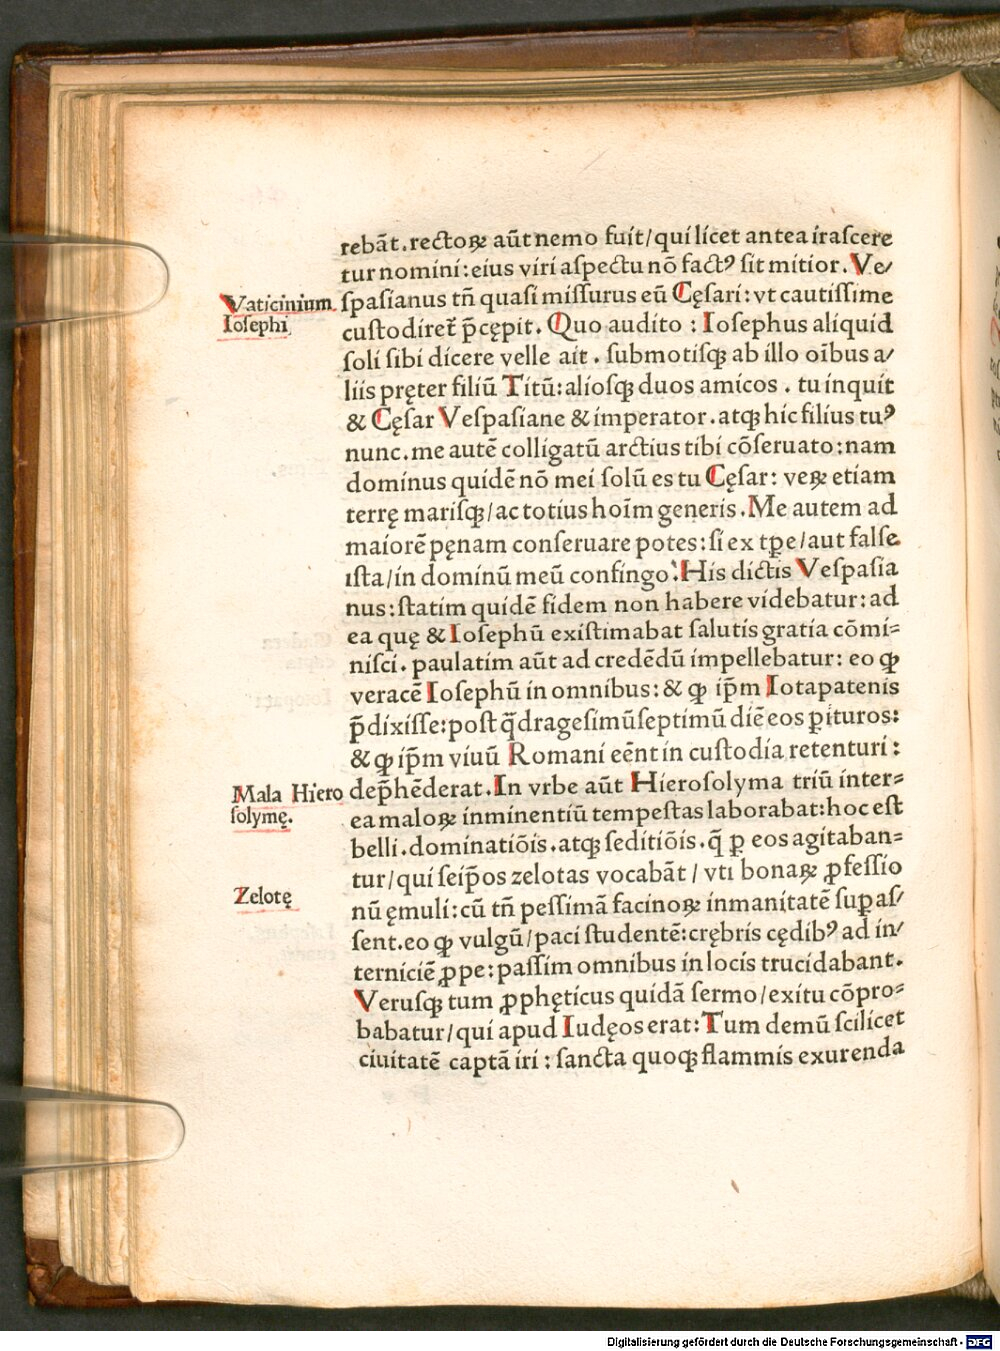 rebāt.rectoꝝ aūt nemo fuit/qui licet antea iraſcere
tur nomini:eius viri aſpectu nō factꝰ ſit mitior.Ve/
Vaticinium
Ioſephi
ſpaſianus tñ quaſi miſſurus eū Cęſari:vt cautiſſime
cuſtodiret̃ p̄cępit. Quo audito : Ioſephus aliquid
ſoli ſibi dicere velle ait . ſubmotiſqꝫ ab illo oībus a/
liis pręter filiū Titū:alioſqꝫ duos amicos . tu inquit
& Cęſar Veſpaſiane & imperator.atqꝫ hic filius tuꝰ
nunc.me autē colligatū arctius tibi cōſeruato:nam
dominus quidē nō mei ſolū es tu Cęſar: veꝝ etiam
terrę mariſqꝫ/ac totius hoīm generis.Me autem ad
maiorē pęnam conſeruare potes:ſi ex tꝑe/aut falſe
iſta/in dominū meū confingo.His dictis Veſpaſia
nus:ſtatim quidē fidem non habere videbatur:ad
ea quę & Ioſephū exiſtimabat ſalutis gratia cōmi⸗
niſci. paulatim aūt ad credēdū impellebatur: eo ꝙ
veracē Ioſephū in omnibus:& ꝙ ip̄m Iotapatenis
p̄dixiſſe:poſt q̄drageſimūſeptimū diē eos ꝑituros:
& ꝙ ip̄m viuū Romani eēnt in cuſtodia retenturi:
Mala Hiero
ſolymę.
dep̄hēderat.In vrbe aūt Hieroſolyma triū inter⸗
ea maloꝝ inminentiū tempeſtas laborabat:hoc eſt
belli.dominatiōis.atqꝫ ſeditiōis.q̄ ꝑ eos agitaban⸗
tur/qui ſeip̄os zelotas vocabāt/vti bonaꝝ ꝓfeſſio
Zelotę
nū ęmuli:cū tñ peſſimā facinoꝝ inmanitatē ſuꝑaſ/
ſent.eo ꝙ vulgū/paci ſtudentē:crębris cędibꝰ ad in/
terniciē ꝓpe:paſſim omnibus in locis trucidabant.
Veruſqꝫ tum ꝓphęticus quidā ſermo/exitu cōpro⸗
babatur/qui apud Iudęos erat:Tum demū ſcilicet
ciuitatē captā iri:ſancta quoqꝫ flammis exurenda
Digitalisierung gefördert durch die Deutsche Forschungsgemeinschaft - DFG